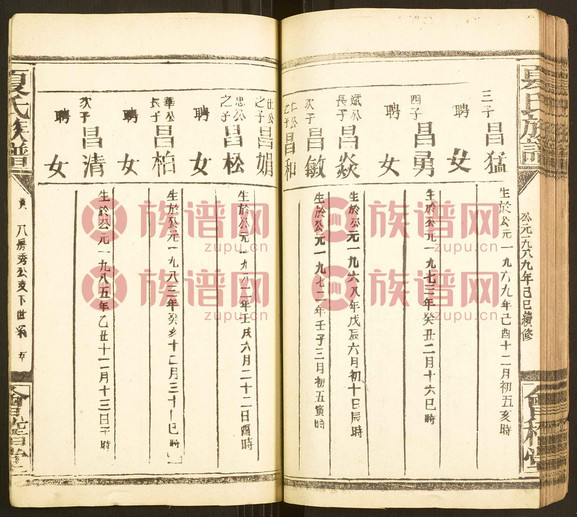 夏氏族譜
公元一九八九年己巳續修
會稽堂
三子 昌猛
生於公元一九六九年己酉十二月初五亥時
聘 女
四子 昌勇
生於公元一九七三年癸丑二月十六巳時
聘 女
斌公長子 昌焱
生於公元一九六八年戊辰六月初十辰時
次子 昌敏
生於公元一九七二年壬子三月初五寅時
公之子 昌和
公之子 昌娟
忠公之子 昌松
生於公元一九八二年壬戌六月二十二日酉時
聘 女
華公長子 昌柏
生於公元一九八三年癸亥十二月三十日巳時
聘 女
次子 昌清
生於公元一九八五年乙丑十一月十三日子時
聘 女
夏氏族譜
八房秀公支下世系
會稽堂
族谱网
zupu.cn
族谱网
zupu.cn
族谱网
zupu.cn
族谱网
zupu.cn